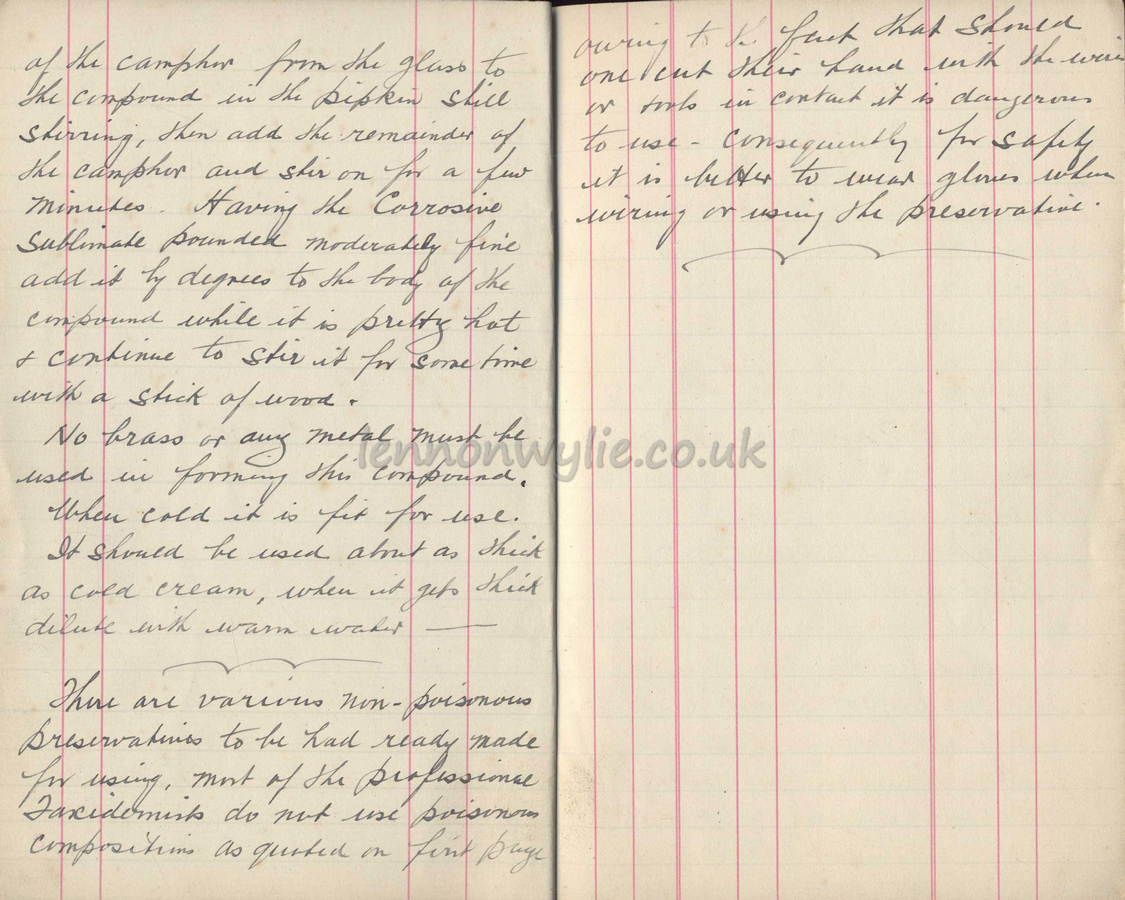 of the camphor from the glass to
the compound in the pipkin still
stirring, then add the remainder of
the camphor and stir on for a few
minutes. Having the Corrosive
Sublimate pounded moderately fine
add it by degrees to the body of the
compound while it is pretty hot
& continue to stir it for some time
with a stick of wood.
No brass or any metal must be
used in forming this compound.
When cold it is fit for use.
It should be used about as thick
as cold cream, when it gets thick
dilute with warm water —
There are various non-poisonous
preservatives to be had ready made
for using, most of the professional
Taxidermists do not use poisonous
compositions as quoted on first page
owing to the fact that should
one cut their hand with the wire
or tools in contact it is dangerous
to use - Consequently for safety
it is better to wear gloves when
wiring or using the preservative.
lennonwylie.co.uk